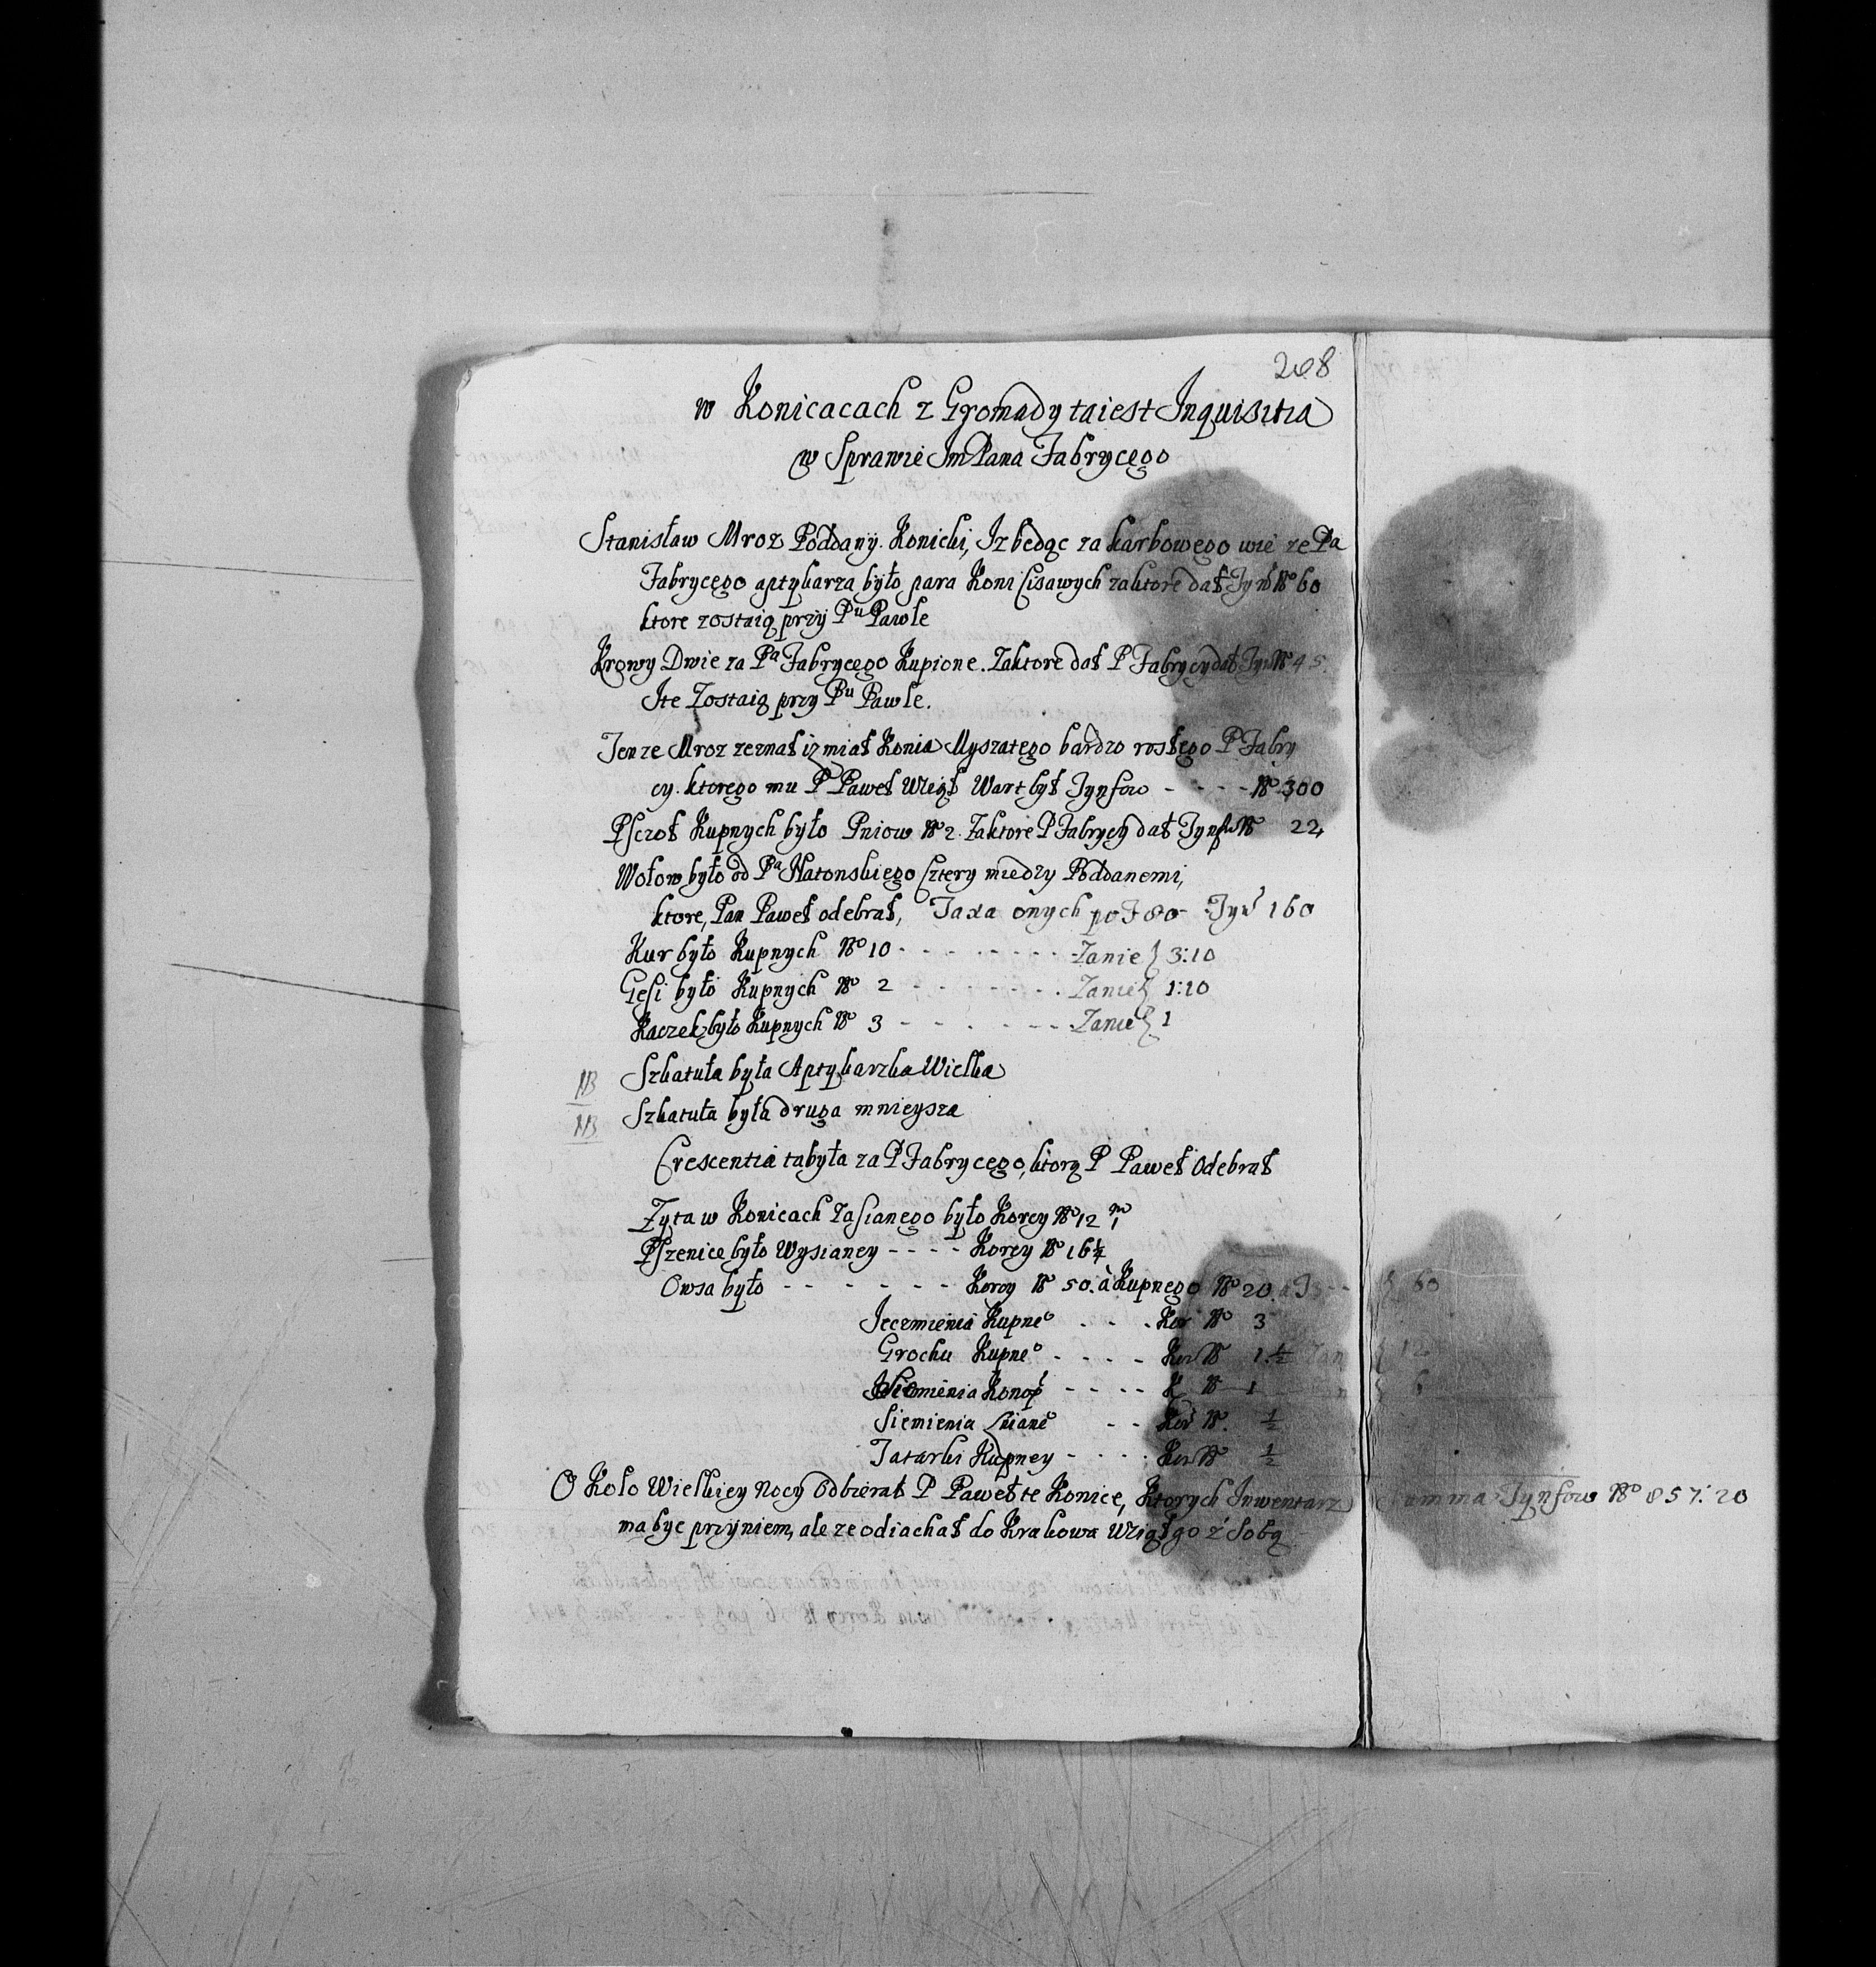 208
w Konicacach z Gromady ta iest Inquisitia
w Sprawie Jm Pana Fabrycego
Stanisław Mroz Poddany. Konicki, Iz bedąc za karbowego wie ze Pa
Fabrycego aptykarza było para Koni Cisawych za ktore dał Tynf No 60
ktore zostaią przy Pu Pawle
Krowy Dwie za Pa Fabrycego Kupione. Zaktore dał P Fabrycy dał Tynf No 45.
Ite Zostaią przy Pu Pawle.
Tenze Mroz zeznał iz miał Konia Myszatego bardzo rosłego P Fabry
cy. ktorego mu P Paweł Wziął Wart był Tynfow - - - - No 300
Psczoł Kupnych było Pniow No 2. Zaktore P Fabrycy dał Tynf No 22
Wołow było od Pa Natonskiego Cztery miedzy Poddanemi,
ktore, Pan Paweł odebrał, Taxa onych po T 80 - Tyn 160
Kur było Kupnych No 10 - - - - - - - - Zanie 3:10
Gęsi było Kupnych No 2 - - - - - - - Zanie 1:10
Kaczek było Kupnych No 3 - - - - - - - Zanie 1
NB Szkatuła była Aptykarzka Wielka
NB Szkatuła była druga mnieysza
Crescentia ta była za P Fabrycego, ktorą P Paweł Odebrał
Zyta w Konicach Zasianego było Korcy No 12
Pszenice było Wysianey - - - - Korcy No 16¼
Owsa było - - - - - - - Korcy No 50. à Kupnego No 20. a T 3 - - 60
Jeczmienia Kupneo - - - Kor No 3
Grochu Kupneo - - - - Kor No 1.½ Zan 12
Siemienia Konop - - - - K No 1 6
Siemienia Lniane - - Kor No. ½
Tatarki Kupney - - - - Kor No ½
O Koło Wielkiey Nocy Odbierał P Paweł te Konice, Ktorych Inwentarz Summa Tynfow No 857:20
ma byc przy niem, ale ze odiachał do Krakowa Wziął go z Sobą